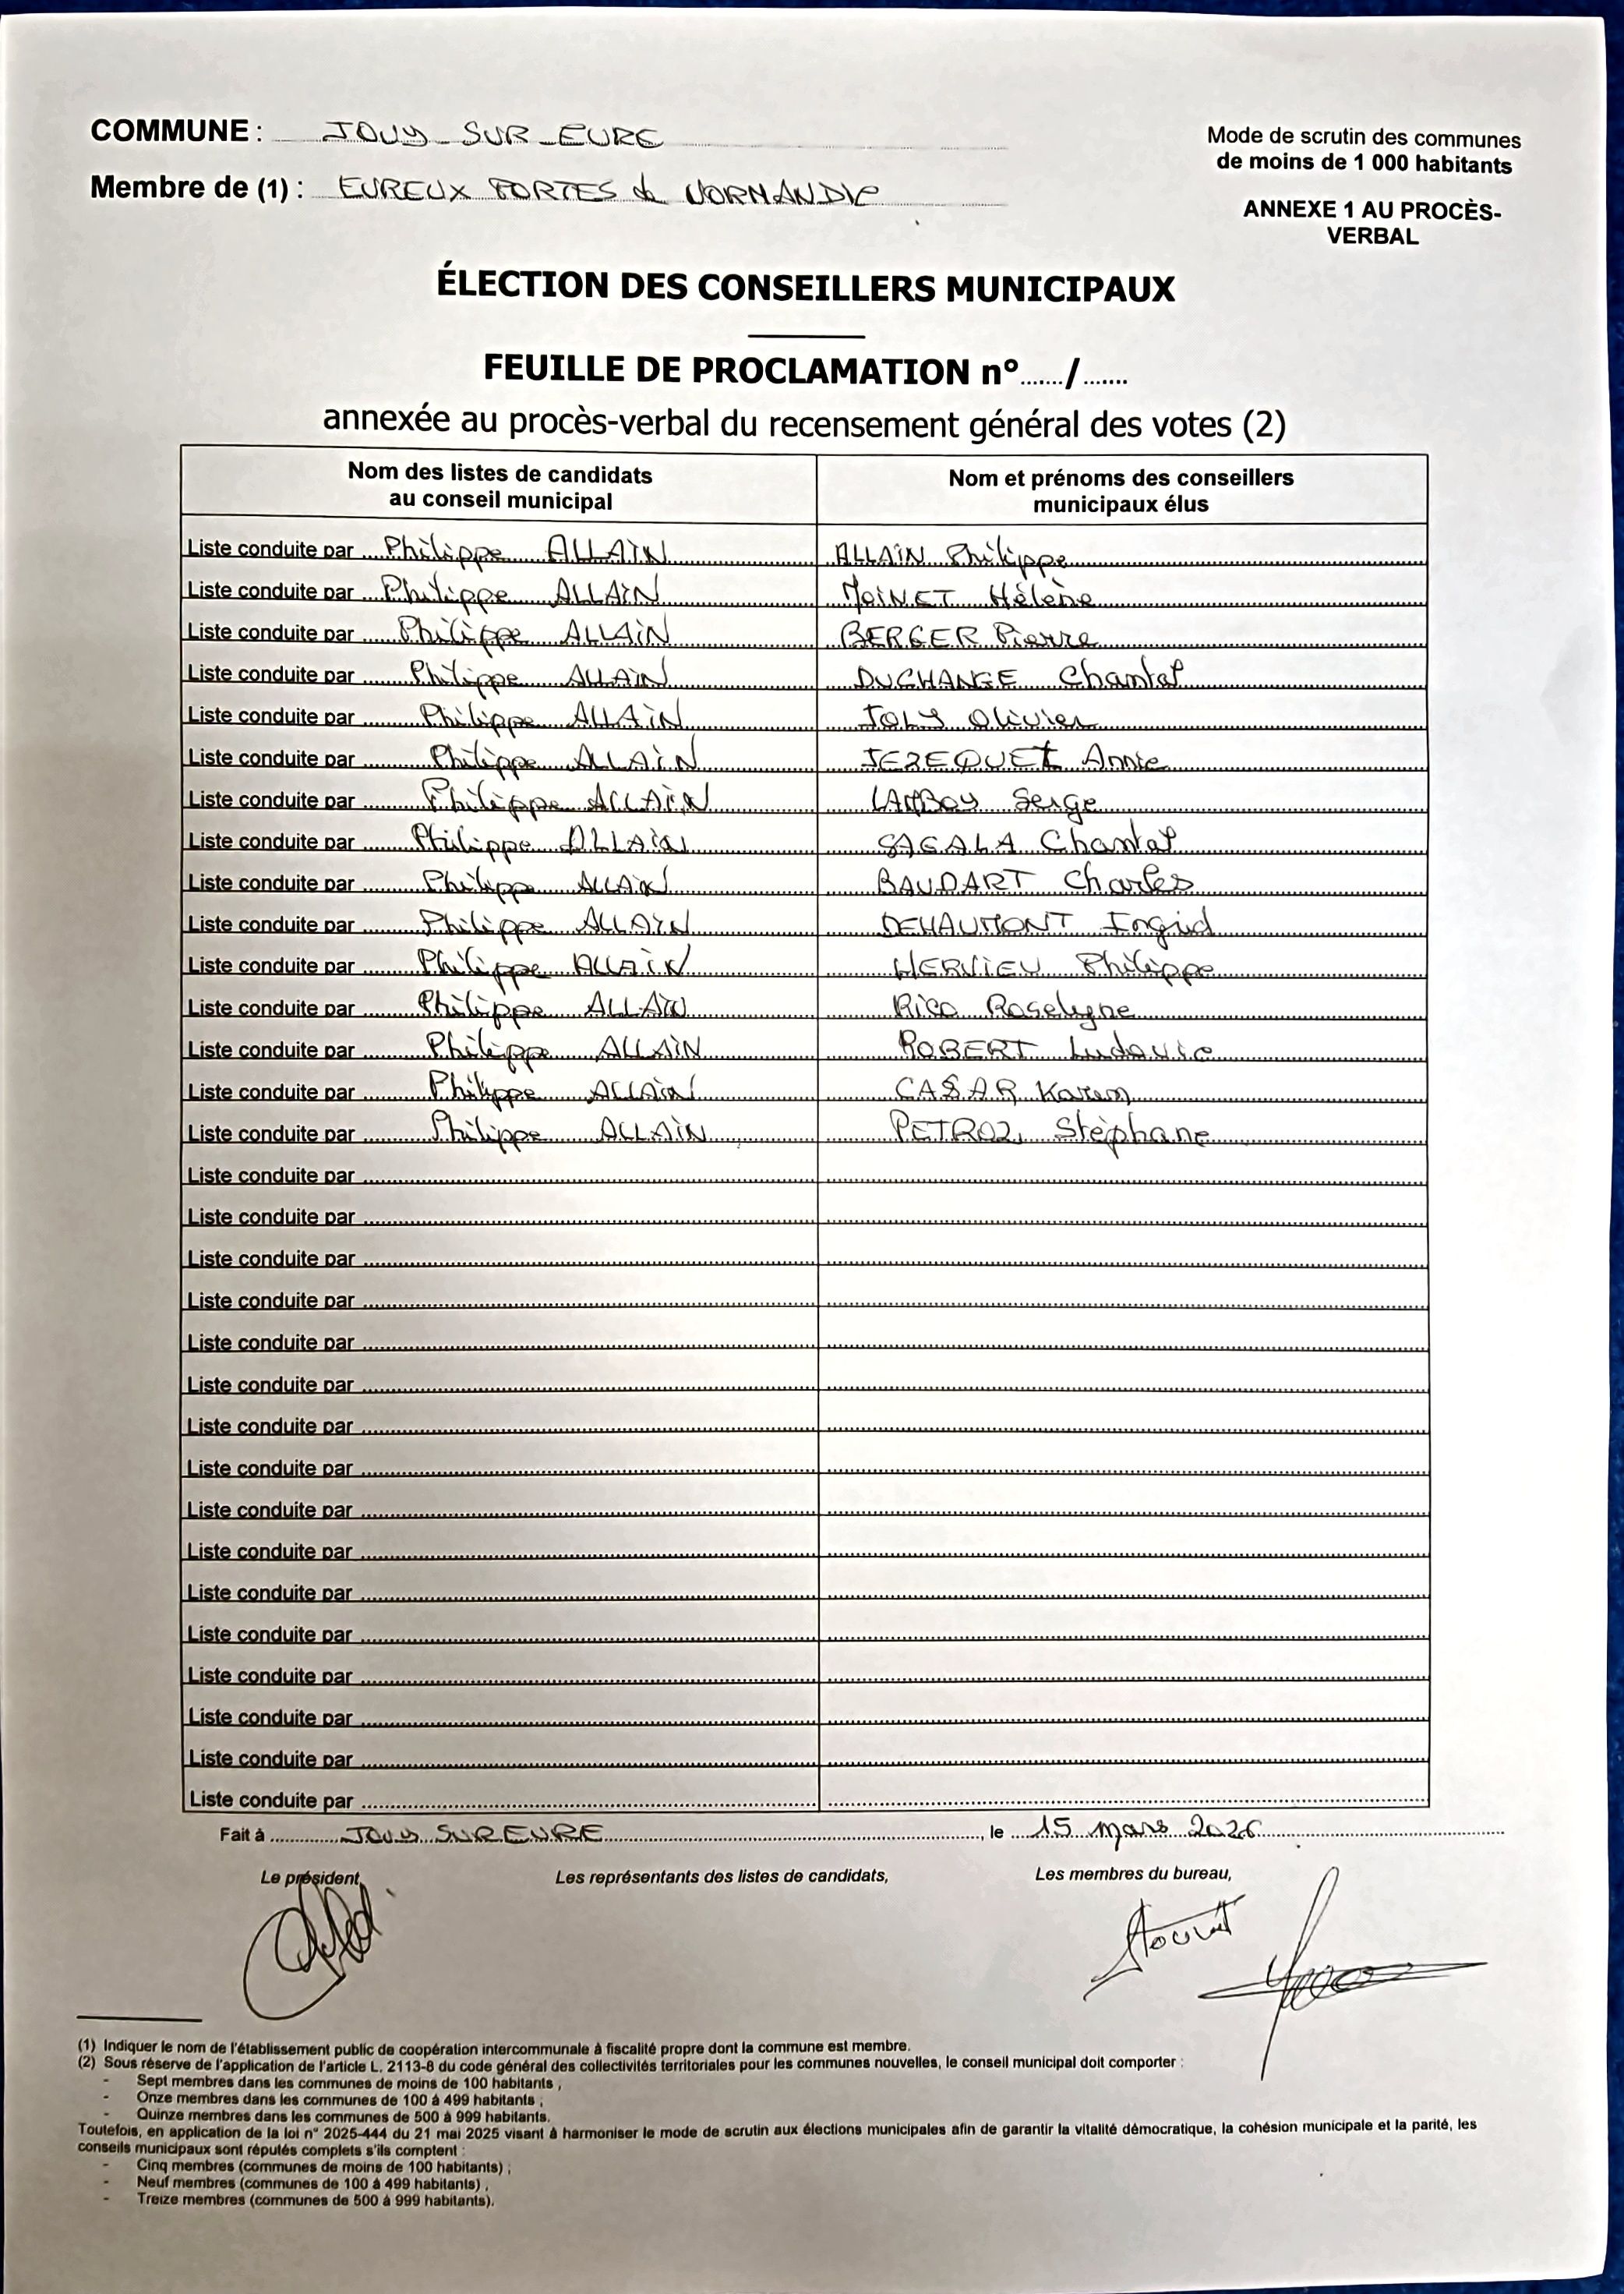 COMMUNE : JOUY SUR EURE
Membre de (1) : EUREUX PORTES de NORMANDIE
Mode de scrutin des communes
de moins de 1 000 habitants
ANNEXE 1 AU PROCÈS-
VERBAL
ÉLECTION DES CONSEILLERS MUNICIPAUX
FEUILLE DE PROCLAMATION n°......./.......
annexée au procès-verbal du recensement général des votes (2)
Nom des listes de candidats
au conseil municipal
Nom et prénoms des conseillers
municipaux élus
Liste conduite par Philippe ALLAIN ALLAIN Philippe
Liste conduite par Philippe ALLAIN MOINET Hélène
Liste conduite par Philippe ALLAIN BERGER Pierre
Liste conduite par Philippe ALLAIN DUCHANGE Chantal
Liste conduite par Philippe ALLAIN JOLY Olivier
Liste conduite par Philippe ALLAIN JEZEQUEL Annie
Liste conduite par Philippe ALLAIN LAMBOY Serge
Liste conduite par Philippe ALLAIN SAGALA Chantal
Liste conduite par Philippe ALLAIN BAUDART Charles
Liste conduite par Philippe ALLAIN DEHAUMONT Ingrid
Liste conduite par Philippe ALLAIN HERVIEU Philippe
Liste conduite par Philippe ALLAIN RICO Roselyne
Liste conduite par Philippe ALLAIN ROBERT Ludovic
Liste conduite par Philippe ALLAIN CASAR Karen
Liste conduite par Philippe ALLAIN Stéphane
Liste conduite par
Liste conduite par
Liste conduite par
Liste conduite par
Liste conduite par
Liste conduite par
Liste conduite par
Liste conduite par
Liste conduite par
Liste conduite par
Liste conduite par
Liste conduite par
Liste conduite par
Liste conduite par
Liste conduite par
Liste conduite par
Fait à JOUY SUR EURE, le 15 mars 2026
Le président,
Les représentants des listes de candidats,
Les membres du bureau,
(1) Indiquer le nom de l'établissement public de coopération intercommunale à fiscalité propre dont la commune est membre.
(2) Sous réserve de l'application de l'article L. 2113-8 du code général des collectivités territoriales pour les communes nouvelles, le conseil municipal doit comporter :
- Sept membres dans les communes de moins de 100 habitants ;
- Onze membres dans les communes de 100 à 499 habitants ;
- Quinze membres dans les communes de 500 à 999 habitants.
Toutefois, en application de la loi n° 2025-444 du 21 mai 2025 visant à harmoniser le mode de scrutin aux élections municipales afin de garantir la vitalité démocratique, la cohésion municipale et la parité, les
conseils municipaux sont réputés complets s'ils comptent :
- Cinq membres (communes de moins de 100 habitants) ;
- Neuf membres (communes de 100 à 499 habitants) ;
- Treize membres (communes de 500 à 999 habitants).